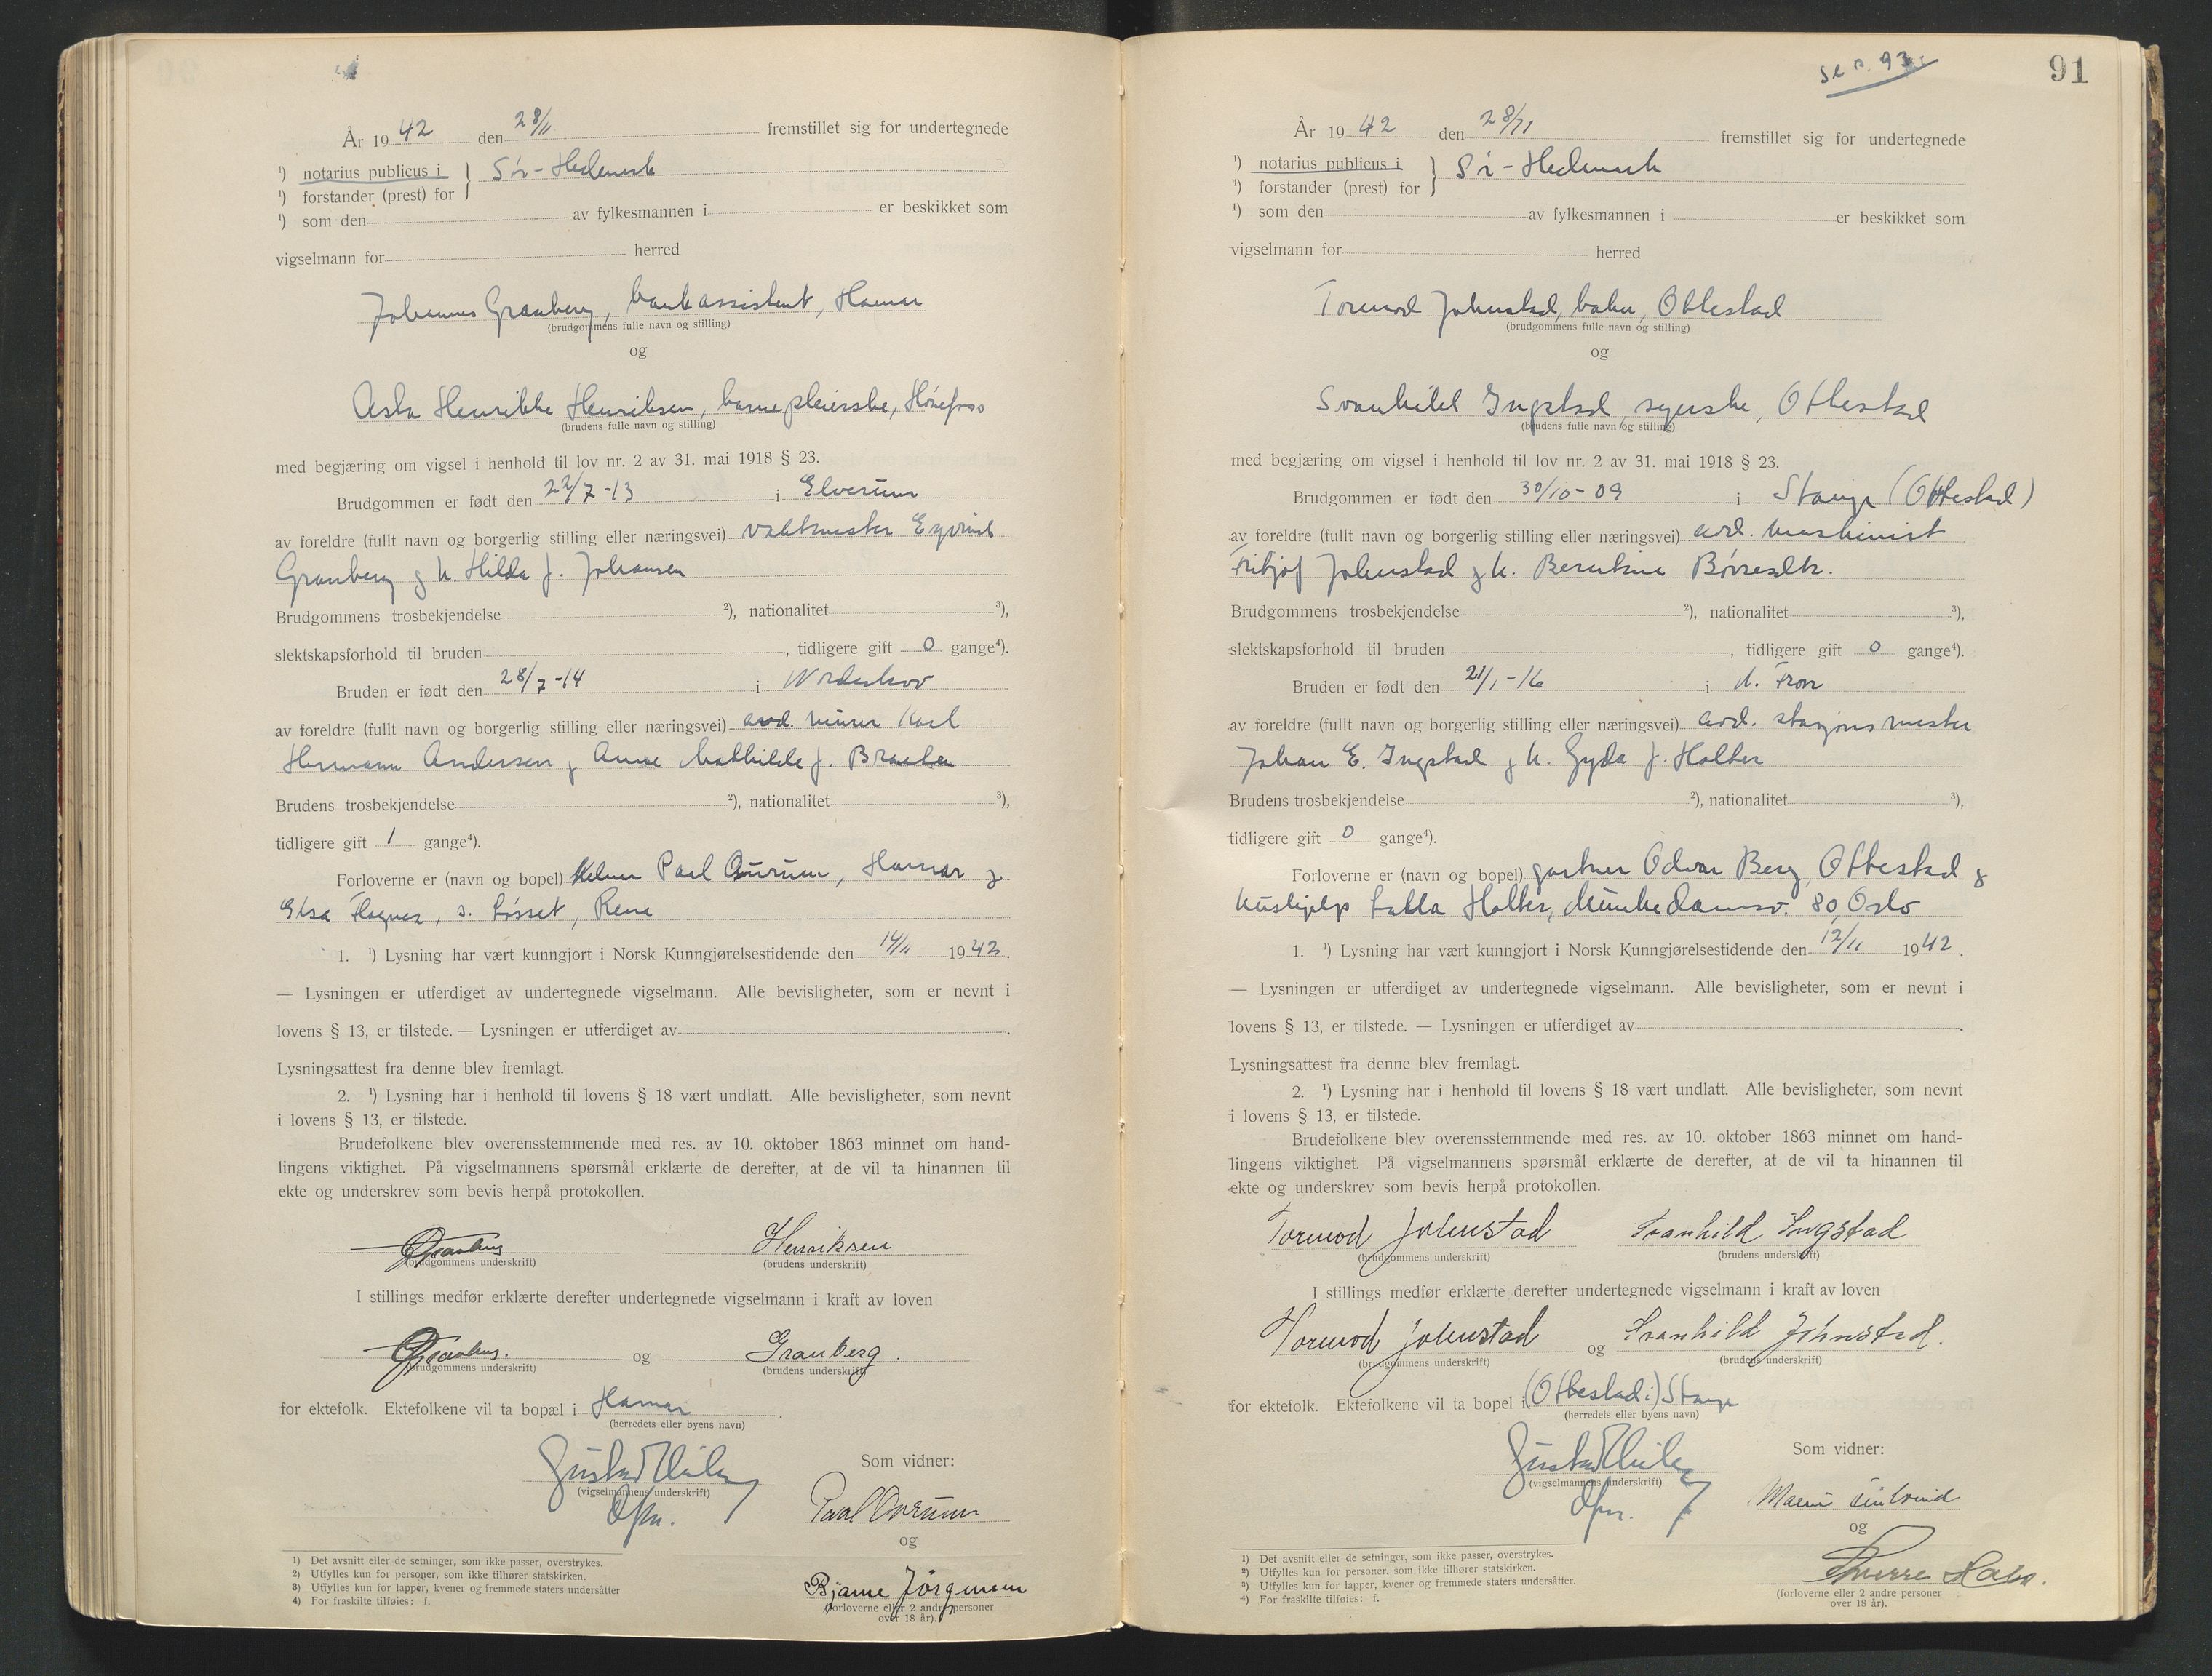 År 1942 den 28/11 fremstillet sig for undertegnede
¹) notarius publicus i } Sør-Hedemark
¹) forstander (prest) for
¹) som den av fylkesmannen i er beskikket som
vigselmann for herred
Johannes Granberg, bankassistent, Hamar
(brudgommens fulle navn og stilling)
og
Asta Henrikke Henriksen, barnepleierske, Hønefoss
(brudens fulle navn og stilling)
med begjæring om vigsel i henhold til lov nr. 2 av 31. mai 1918 § 23.
Brudgommen er født den 22/7-13 i Elverum
av foreldre (fullt navn og borgerlig stilling eller næringsvei) vaktmester Eyvind
Granberg og h. Hilda f. Johansen
Brudgommens trosbekjendelse ²), nationalitet ³),
slektskapsforhold til bruden , tidligere gift 0 gange⁴).
Bruden er født den 28/7-14 i Norderhov
av foreldre (fullt navn og borgerlig stilling eller næringsvei) avd. murer Karl
Hermann Andersen og Anne Mathilde f. Braaten
Brudens trosbekjendelse ²), nationalitet ³),
tidligere gift 1 gange⁴).
Forloverne er (navn og bopel) Paal Aurum, Hamar og
Elsa s. Løsset, Rena
1. ¹) Lysning har vært kunngjort i Norsk Kunngjørelsestidende den 14/11 1942.
— Lysningen er utferdiget av undertegnede vigselmann. Alle bevisligheter, som er nevnt i
lovens § 13, er tilstede. — Lysningen er utferdiget av .
Lysningsattest fra denne blev fremlagt.
2. ¹) Lysning har i henhold til lovens § 18 vært undlatt. Alle bevisligheter, som nevnt
i lovens § 13, er tilstede.
Brudefolkene blev overensstemmende med res. av 10. oktober 1863 minnet om hand-
lingens viktighet. På vigselmannens spørsmål erklærte de derefter, at de vil ta hinannen til
ekte og underskrev som bevis herpå protokollen.
Granberg Henriksen
(brudgommens underskrift) (brudens underskrift)
I stillings medfør erklærte derefter undertegnede vigselmann i kraft av loven
Granberg. og Granberg.
(brudgommens underskrift) (brudens underskrift)
for ektefolk. Ektefolkene vil ta bopæl i Hamar .
(herredets eller byens navn)
(vigselmannens underskrift)
Som vidner:
Paal Aurum
og
Bjarne Jörgensen
(forloverne eller 2 andre personer
over 18 år).
1) Det avsnitt eller de setninger, som ikke passer, overstrykes.
2) Utfylles kun for personer, som ikke tilhører statskirken.
3) Utfylles kun for lapper, kvener og fremmede staters undersåtter
4) For fraskilte tilføies: f.
Se s. 93
91
År 1942 den 28/11 fremstillet sig for undertegnede
¹) notarius publicus i } Sør-Hedemark
¹) forstander (prest) for
¹) som den av fylkesmannen i er beskikket som
vigselmann for herred
Tormod Johnstad, baker, Ottestad
(brudgommens fulle navn og stilling)
og
Svanhild Ingstad, syerske, Ottestad
(brudens fulle navn og stilling)
med begjæring om vigsel i henhold til lov nr. 2 av 31. mai 1918 § 23.
Brudgommen er født den 30/10-09 i Stange (Ottestad)
av foreldre (fullt navn og borgerlig stilling eller næringsvei) avd. maskinist
Fritjof Johnstad og h. Berntine Børresdtr.
Brudgommens trosbekjendelse ²), nationalitet ³),
slektskapsforhold til bruden , tidligere gift 0 gange⁴).
Bruden er født den 21/1-16 i N. Fron
av foreldre (fullt navn og borgerlig stilling eller næringsvei) avd. stasjonsmester
Johan E. Ingstad og h. Gyda f. Holter
Brudens trosbekjendelse ²), nationalitet ³),
tidligere gift 0 gange⁴).
Forloverne er (navn og bopel) gartner Odvar Berg, Ottestad og
hushjelp Holter, Munkedamsv. 80, Oslo
1. ¹) Lysning har vært kunngjort i Norsk Kunngjørelsestidende den 12/11 1942.
— Lysningen er utferdiget av undertegnede vigselmann. Alle bevisligheter, som er nevnt i
lovens § 13, er tilstede. — Lysningen er utferdiget av .
Lysningsattest fra denne blev fremlagt.
2. ¹) Lysning har i henhold til lovens § 18 vært undlatt. Alle bevisligheter, som nevnt
i lovens § 13, er tilstede.
Brudefolkene blev overensstemmende med res. av 10. oktober 1863 minnet om hand-
lingens viktighet. På vigselmannens spørsmål erklærte de derefter, at de vil ta hinannen til
ekte og underskrev som bevis herpå protokollen.
Tormod Johnstad Svanhild Ingstad
(brudgommens underskrift) (brudens underskrift)
I stillings medfør erklærte derefter undertegnede vigselmann i kraft av loven
Tormod Johnstad og Svanhild Johnstad.
(brudgommens underskrift) (brudens underskrift)
for ektefolk. Ektefolkene vil ta bopel i (Ottestad i) Stange
(herredets eller byens navn)
(vigselmannens underskrift)
Som vidner:
og
Sverre
(forloverne eller 2 andre personer
over 18 år).
1) Det avsnitt eller de setninger, som ikke passer, overstrykes.
2) Utfylles kun for personer, som ikke tilhører statskirken.
3) Utfylles kun for lapper, kvener og fremmede staters undersåtter.
4) For fraskilte tilføies: f.